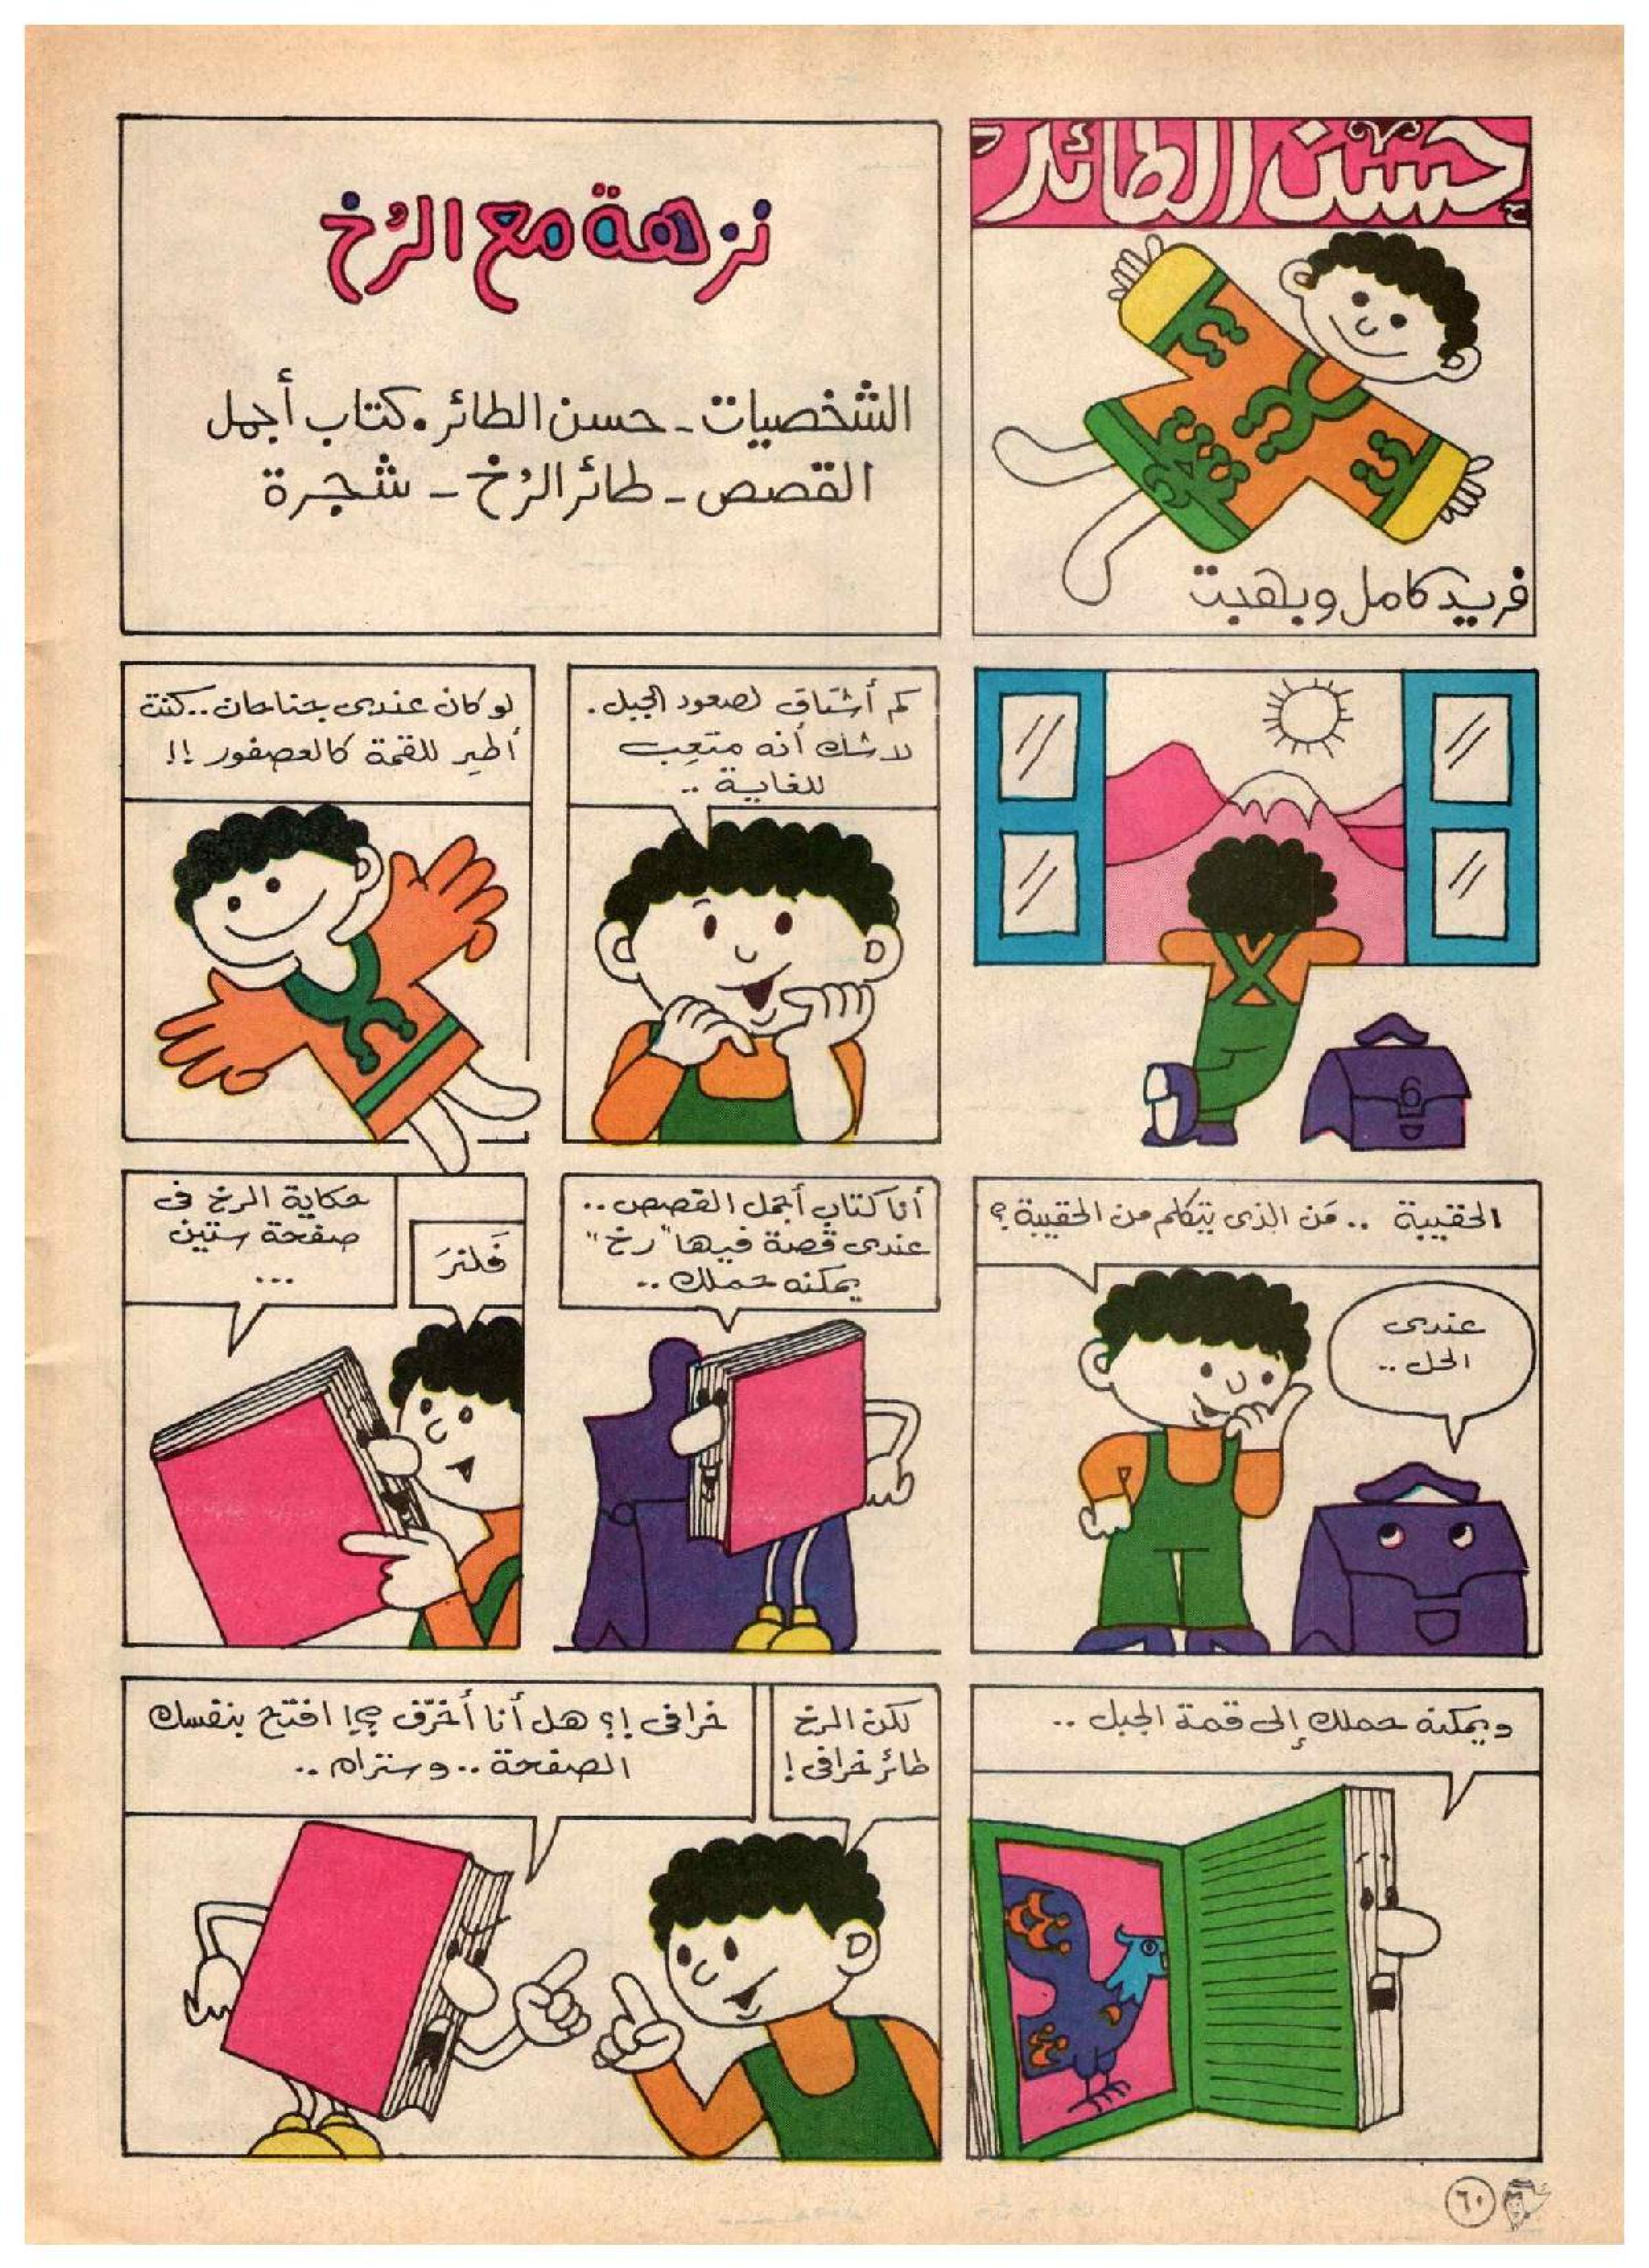 حسن الطائر
فريد كامل وبهجت
نزهة مع الرُخ
الشخصيات - حسن الطائر. كتاب أجمل
القصص - طائر الرُخ - شجرة
كم أشتاق لصعود الجبل.
لا شك أنه متعِب
للغاية ..
لو كان عندى جناحان .. كنت
أطير للقمة كالعصفور !!
الحقيبة .. مَن الذى يتكلم من الحقيبة ؟
عندى
الحل ..
أنا كتاب أجمل القصص ..
عندى قصة فيها "رخ"
يمكنه حملك ..
فَلنرَ
حكاية الرخ فى
صفحة ستين
...
ويمكنه حملك إلى قمة الجبل ..
لكن الرخ
طائر خرافى !
خرافى !؟ هل أنا أخرّف ؟! افتح بنفسك
الصفحة .. وستراه ..
٦٠